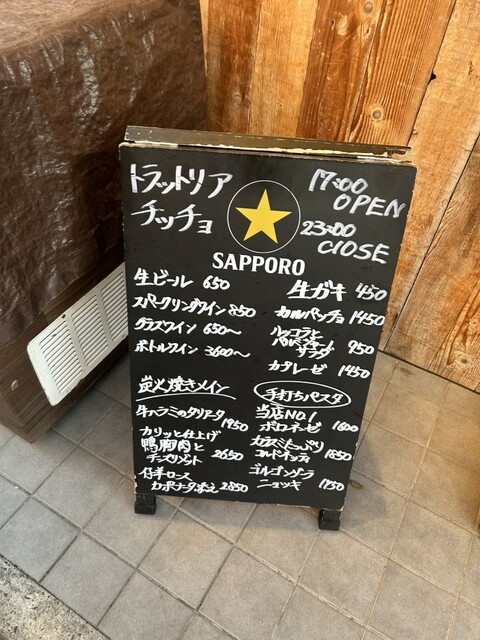 トラットリア
チッチョ
17:00
OPEN
23:00
ClOSE
SAPPORO
生ビール 650
スパークリングワイン 850
グラスワイン 650〜
ボトルワイン 3600〜
生ガキ 450
カルパッチョ 1450
ルッコラと
サラダ 950
カプレーゼ 1450
炭火焼きメイン
牛ハラミのタリアータ
1950
カリッと仕上げ
鴨胸肉と
チーズリゾット 2650
仔羊ロース
カポナータ添え 2850
手打ちパスタ
当店NO.1
ボロネーゼ 1600
カラスミたっぷり
1850
ゴルゴンゾーラ
ニョッキ 1750